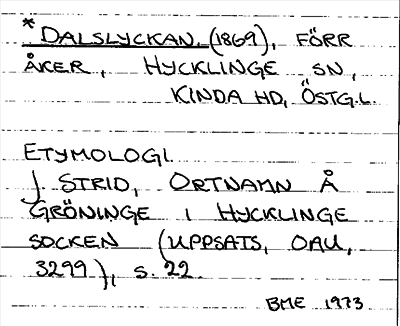 * DALSLYCKAN, (1869), FÖRR
ÅKER, HYCKLINGE SN,
KINDA HD, ÖSTG.L.
ETYMOLOGI.
J. STRID, ORTNAMN Å
GRÖNINGE I HYCKLINGE
SOCKEN (UPPSATS, OAU,
3299), S. 22.
BME 1973